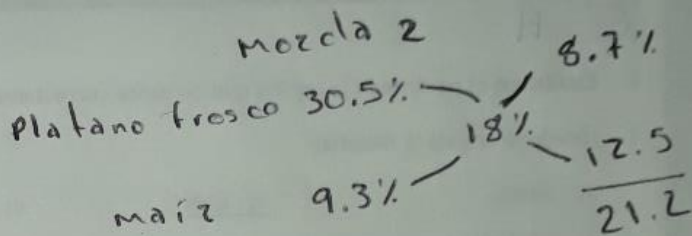 Mozcla 2
Platano fresco 30.5% 8.7%
18%
maíz 9.3% 12.5
21.2